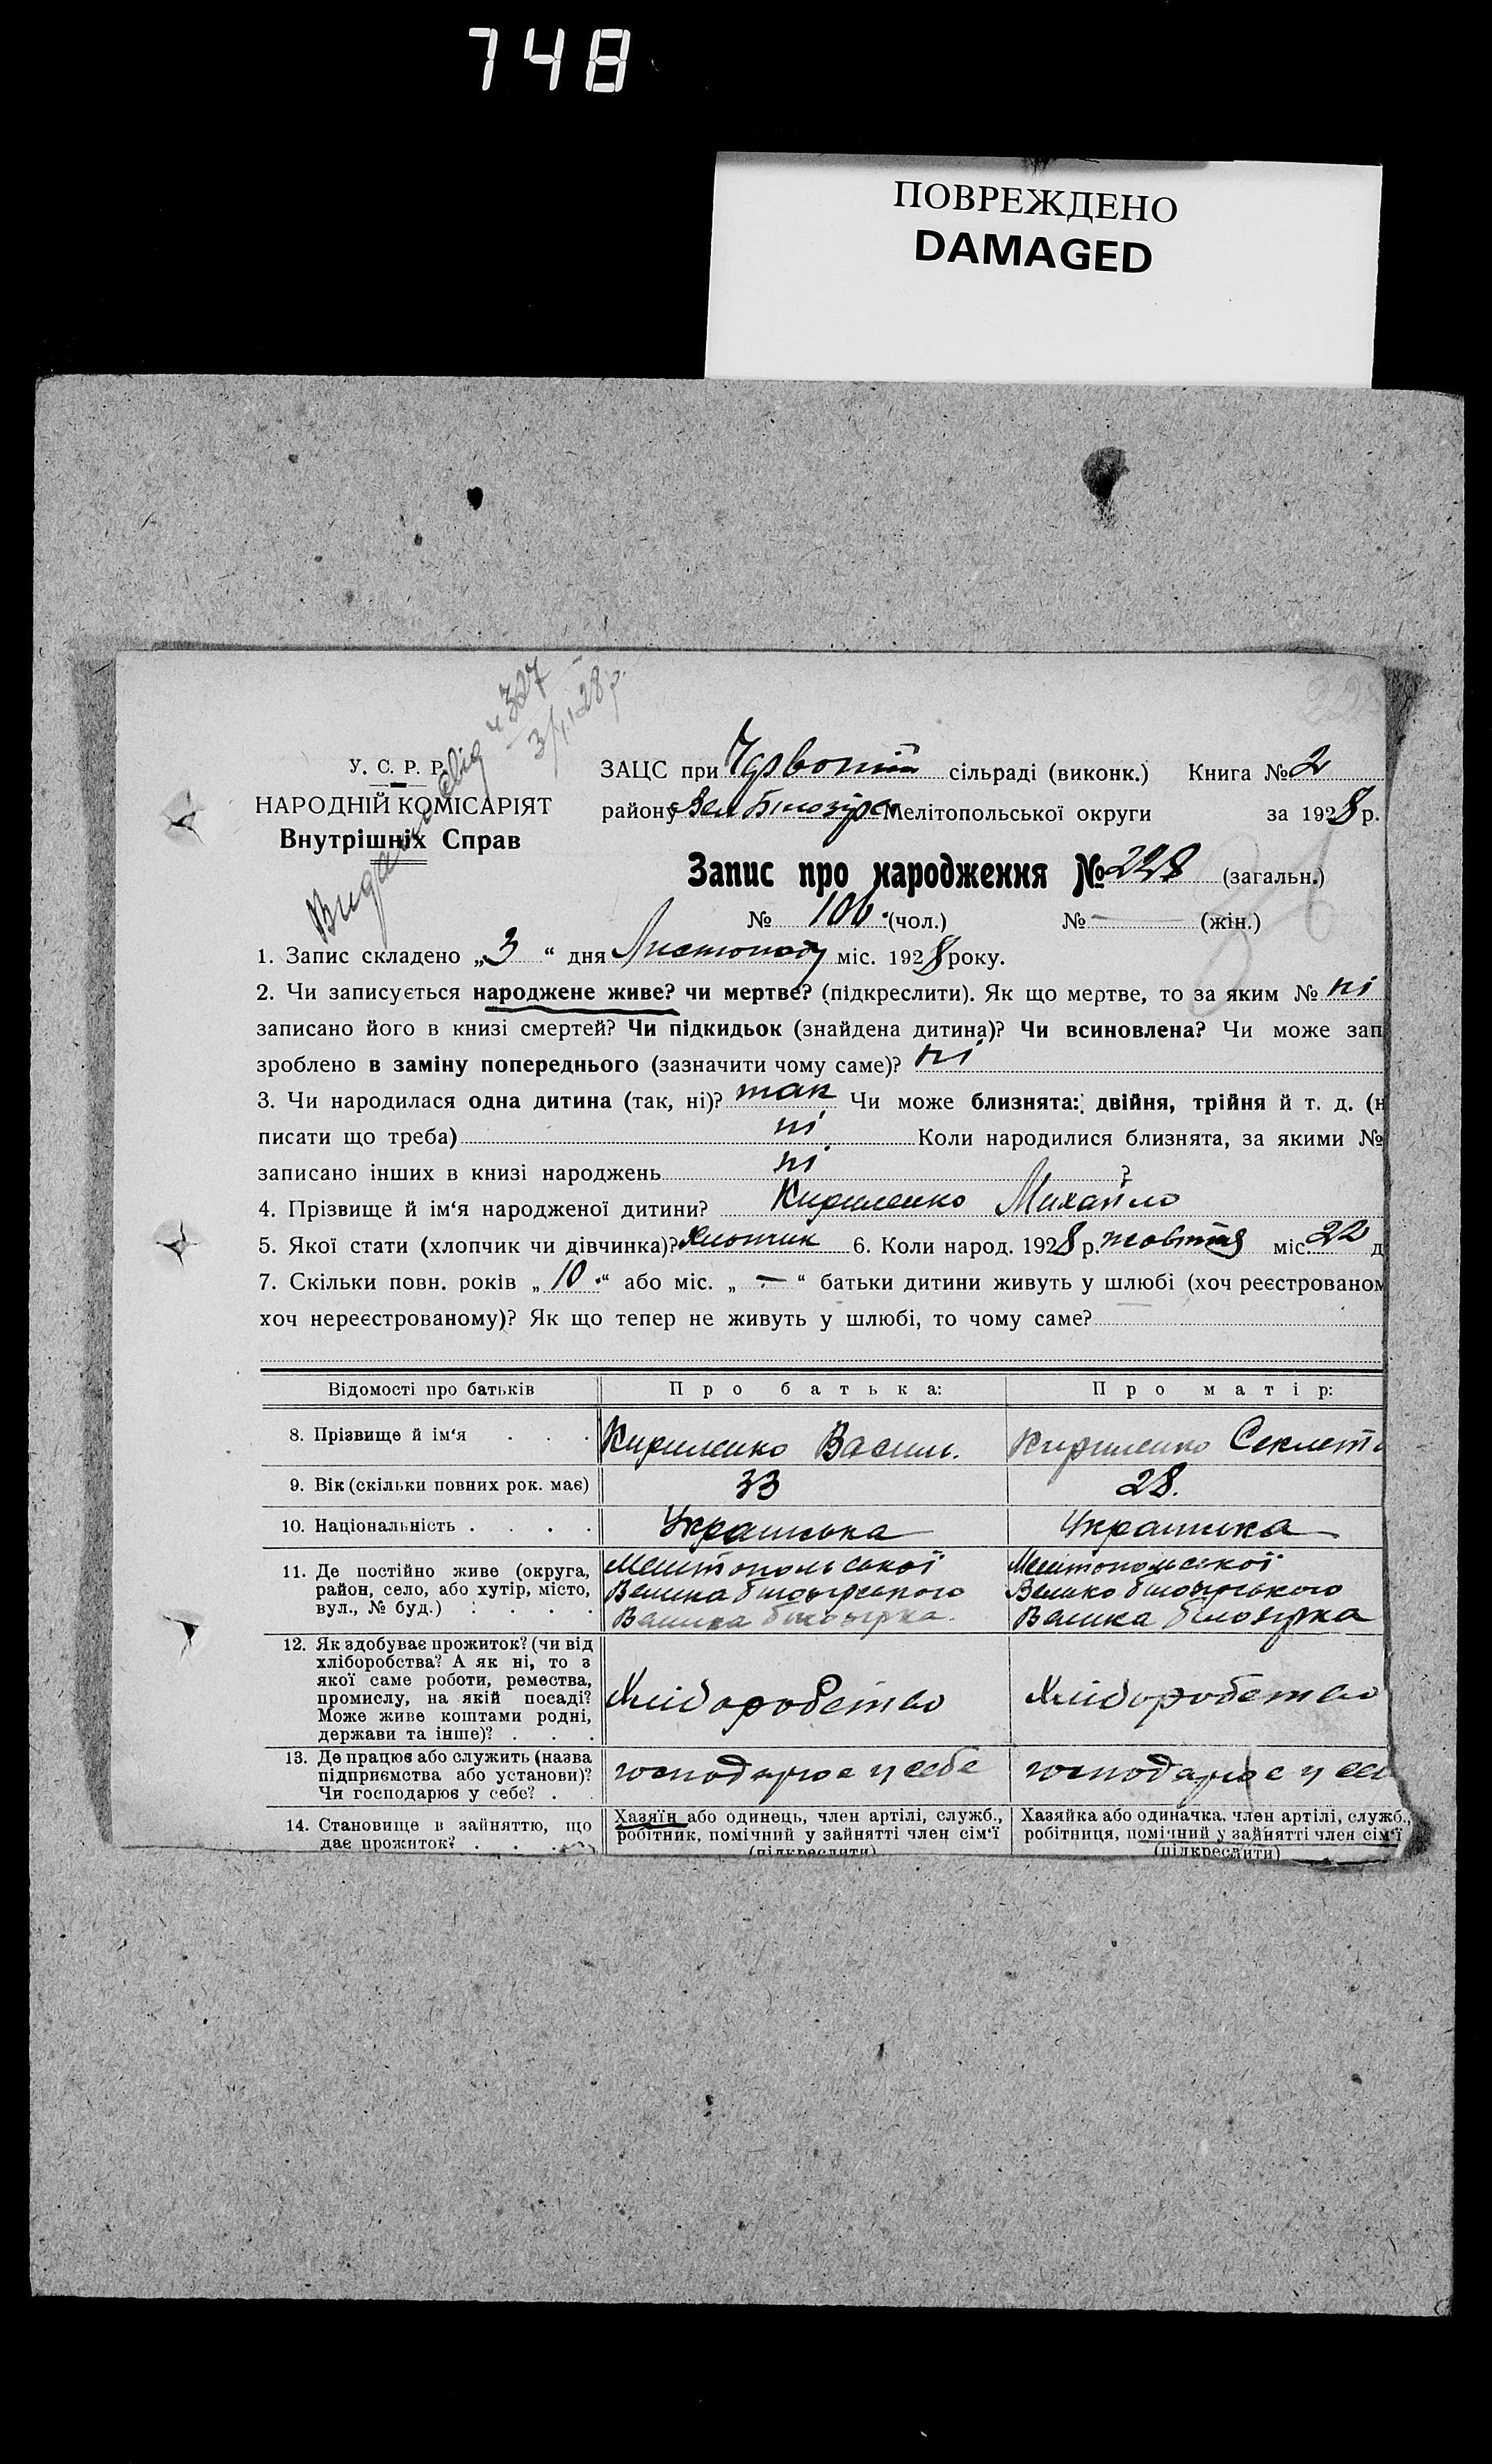 748
ПОВРЕЖДЕНО
DAMAGED
ч 327
3/XI 28 р.
228
Видано
У. С. Р. Р.
НАРОДНІЙ КОМІСАРІЯТ
Внутрішніх Справ
ЗАЦС при Червоній сільраді (виконк.) Книга № 2
району Вел Білозірк Мелітопольської округи за 1928 р.
Запис про народження № 228 (загальн.)
№ 106 (чол.) № — (жін.)
1. Запис складено „3“ дня Листопаду міс. 1928 року.
2. Чи записується народжене живе? чи мертве? (підкреслити). Як що мертве, то за яким № ні
записано його в книзі смертей? Чи підкидьок (знайдена дитина)? Чи всиновлена? Чи може зап
зроблено в заміну попереднього (зазначити чому саме)? ні
3. Чи народилася одна дитина (так, ні)? так Чи може близнята: двійня, трійня й т. д. (н
писати що треба) ні Коли народилися близнята, за якими №
записано інших в книзі народжень ні ?
4. Прізвище й ім‘я народженої дитини? Кириленко Михайло
5. Якої стати (хлопчик чи дівчинка)? Хлопчик 6. Коли народ. 1928 р. жовтня міс. 22 д
7. Скільки повн. років „10“ або міс. „—“ батьки дитини живуть у шлюбі (хоч реєстрованом
хоч нереєстрованому)? Як що тепер не живуть у шлюбі, то чому саме?
Відомості про батьків Про батька: Про матір:
8. Прізвище й ім‘я . . . Кириленко Васил. Кириленко Секлет
9. Вік (скільки повних рок. має) 33 28.
10. Національність . . . . Українська Українка
11. Де постійно живе (округа, Мелітопольської Мелітопольської
район, село, або хутір, місто, Велика білозірського Велико білозірського
вул., № буд.) . . . . Велика білозірка. Велика білозірка
12. Як здобуває прожиток? (чи від
хліборобства? А як ні, то з
якої саме роботи, ремества,
промислу, на якій посаді? Хліборобство Хліборобство
Може живе коштами родні,
держави та інше)? . . .
13. Де працює або служить (назва
підприємства або установи)? господарює у себе господарює у себ
Чи господарює у себе? . .
14. Становище в зайняттю, що Хазяїн або одинець, член артілі, служб., Хазяйка або одиначка, член артілі, служб.,
дає прожиток? . . . . робітник, помічний у зайнятті член сім‘ї робітниця, помічний у зайнятті член сім‘ї
(підкреслити) (підкреслити)